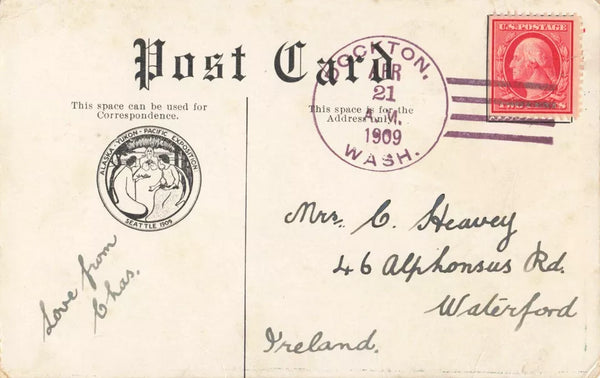 Post Card
This space can be used for
Correspondence.
This space is for the
Address only.
U.S. POSTAGE
STOCKTON,
APR
21
A.M.
1909
WASH.
ALASKA · YUKON · PACIFIC EXPOSITION
SEATTLE 1909
Mrs. C. Heavey
46 Alphonsus Rd.
Waterford
Ireland.
Love from
Chas.